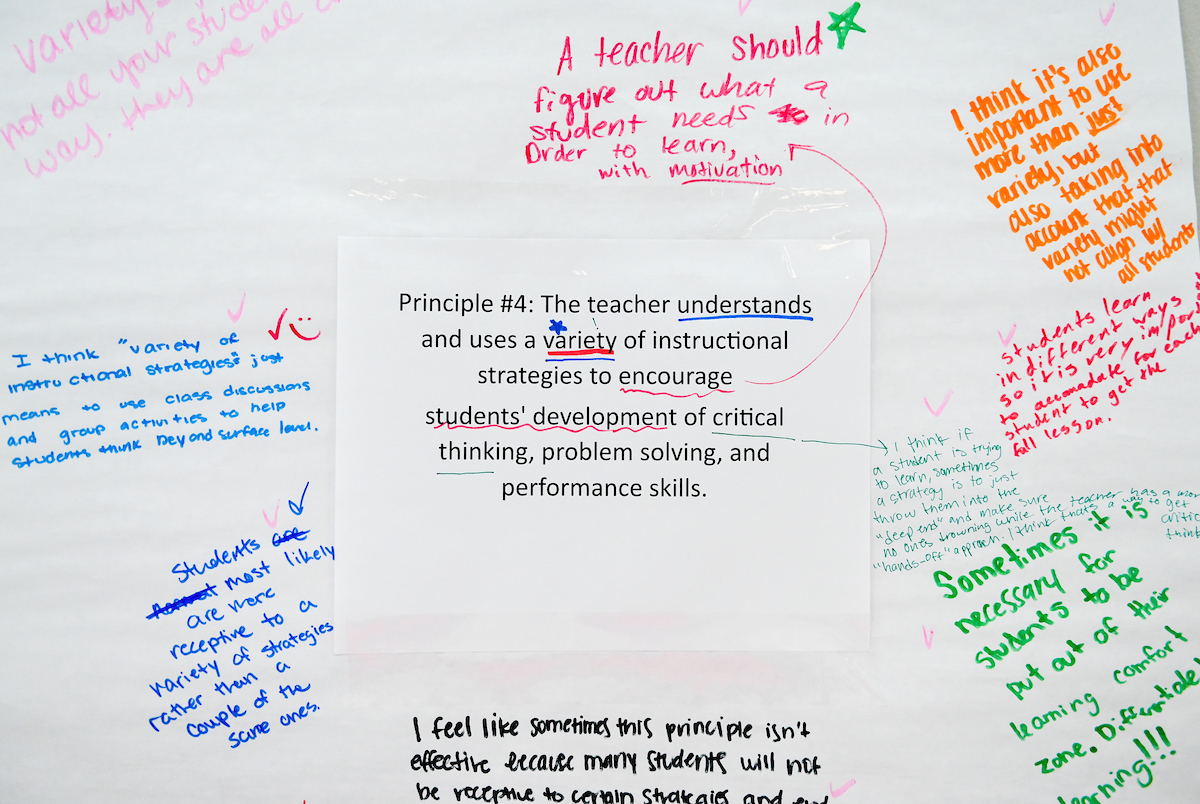 variety
not all your stude
way. they are all
A teacher should
figure out what a
student needs in
Order to learn,
with motivation
I think it's also
important to use
more than just
variety, but
also taking into
account that that
variety might
not align w/
all students
Principle #4: The teacher understands
and uses a variety of instructional
strategies to encourage
students' development of critical
thinking, problem solving, and
performance skills.
I think "variety of
instructional strategies" just
means to use class discussions
and group activities to help
students think beyond surface level.
students learn
in different ways
so it is very import
to accomadate for each
student to get the
full lesson.
I think if
a student is trying
to learn, sometimes
a strategy is to just
throw them into the
"deep end" and make sure
no ones drowning while the teacher has a more
"hands-off" approach. I think that's a way to get
critic
think
Students are
most likely
are more
receptive to a
variety of strategies
rather than a
couple of the
same ones.
Sometimes it is
necessary for
students to be
put out of their
learning comfort
zone. Differentiate
learning!!!
I feel like sometimes this principle isn't
effective because many students will not
be receptive to certain stratagies and